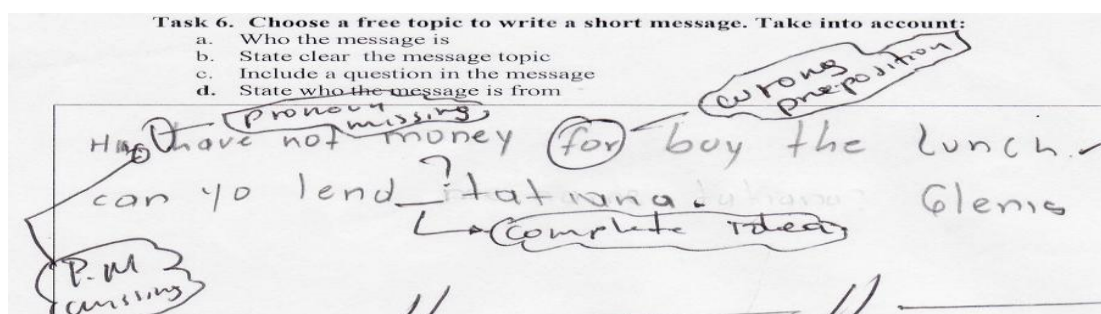 Task 6. Choose a free topic to write a short message. Take into account:
a. Who the message is
b. State clear the message topic
c. Include a question in the message
d. State who the message is from
wrong
preposition
pronoun
missing
have not money for buy the lunch.
can yo lend ? tatiana. Glenis
Complete Idea
P.M
missing